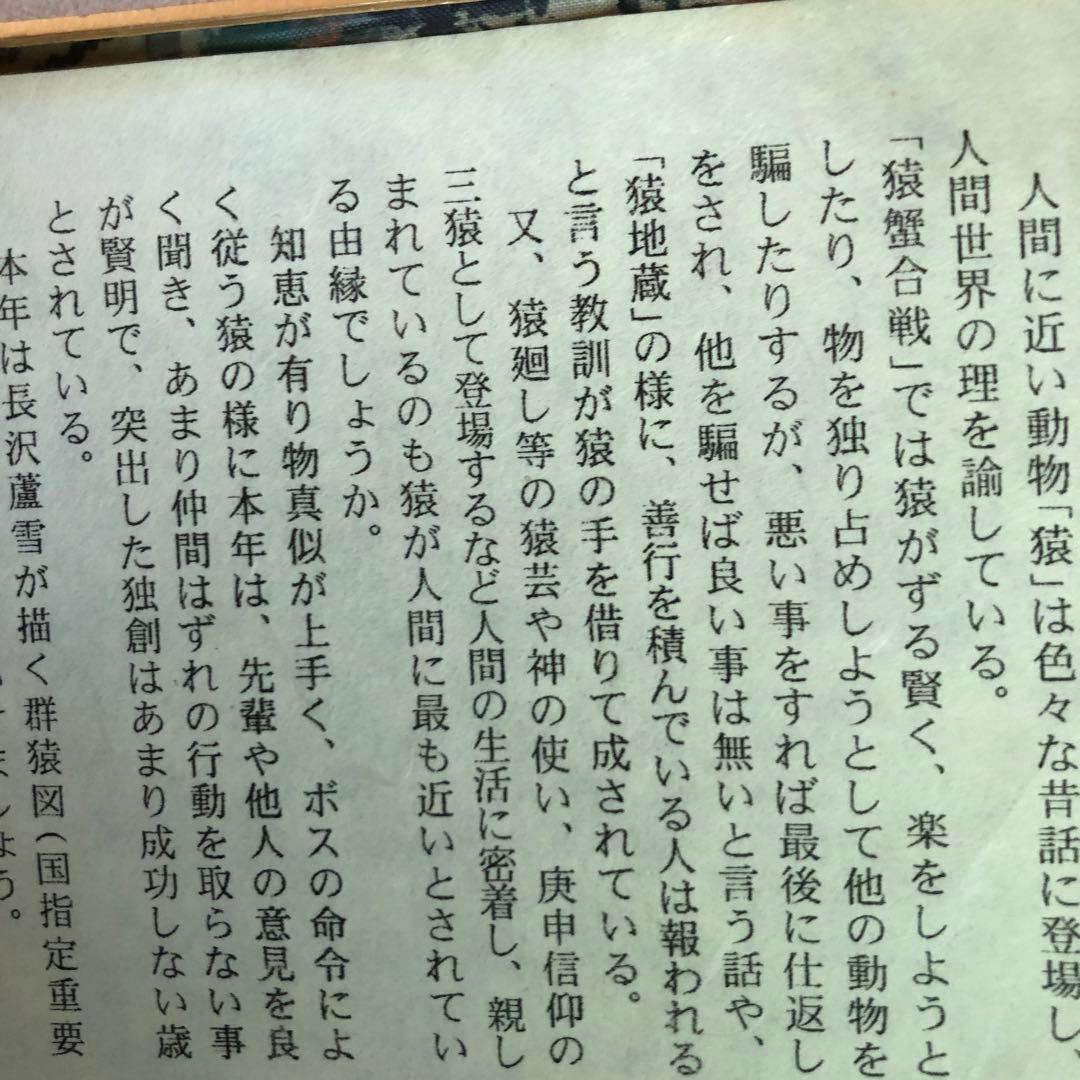 人間に近い動物「猿」は色々な昔話に登場し、
人間世界の理を諭している。
「猿蟹合戦」では猿がずる賢く、楽をしようと
したり、物を独り占めしようとして他の動物を
騙したりするが、悪い事をすれば最後に仕返し
をされ、他を騙せば良い事は無いと言う話や、
「猿地蔵」の様に、善行を積んでいる人は報われる
と言う教訓が猿の手を借りて成されている。
又、猿廻し等の猿芸や神の使い、庚申信仰の
三猿として登場するなど人間の生活に密着し、親し
まれているのも猿が人間に最も近いとされてい
る由縁でしょうか。
知恵が有り物真似が上手く、ボスの命令によ
く従う猿の様に本年は、先輩や他人の意見を良
く聞き、あまり仲間はずれの行動を取らない事
が賢明で、突出した独創はあまり成功しない歳
とされている。
本年は長沢蘆雪が描く群猿図(国指定重要
ましょう。